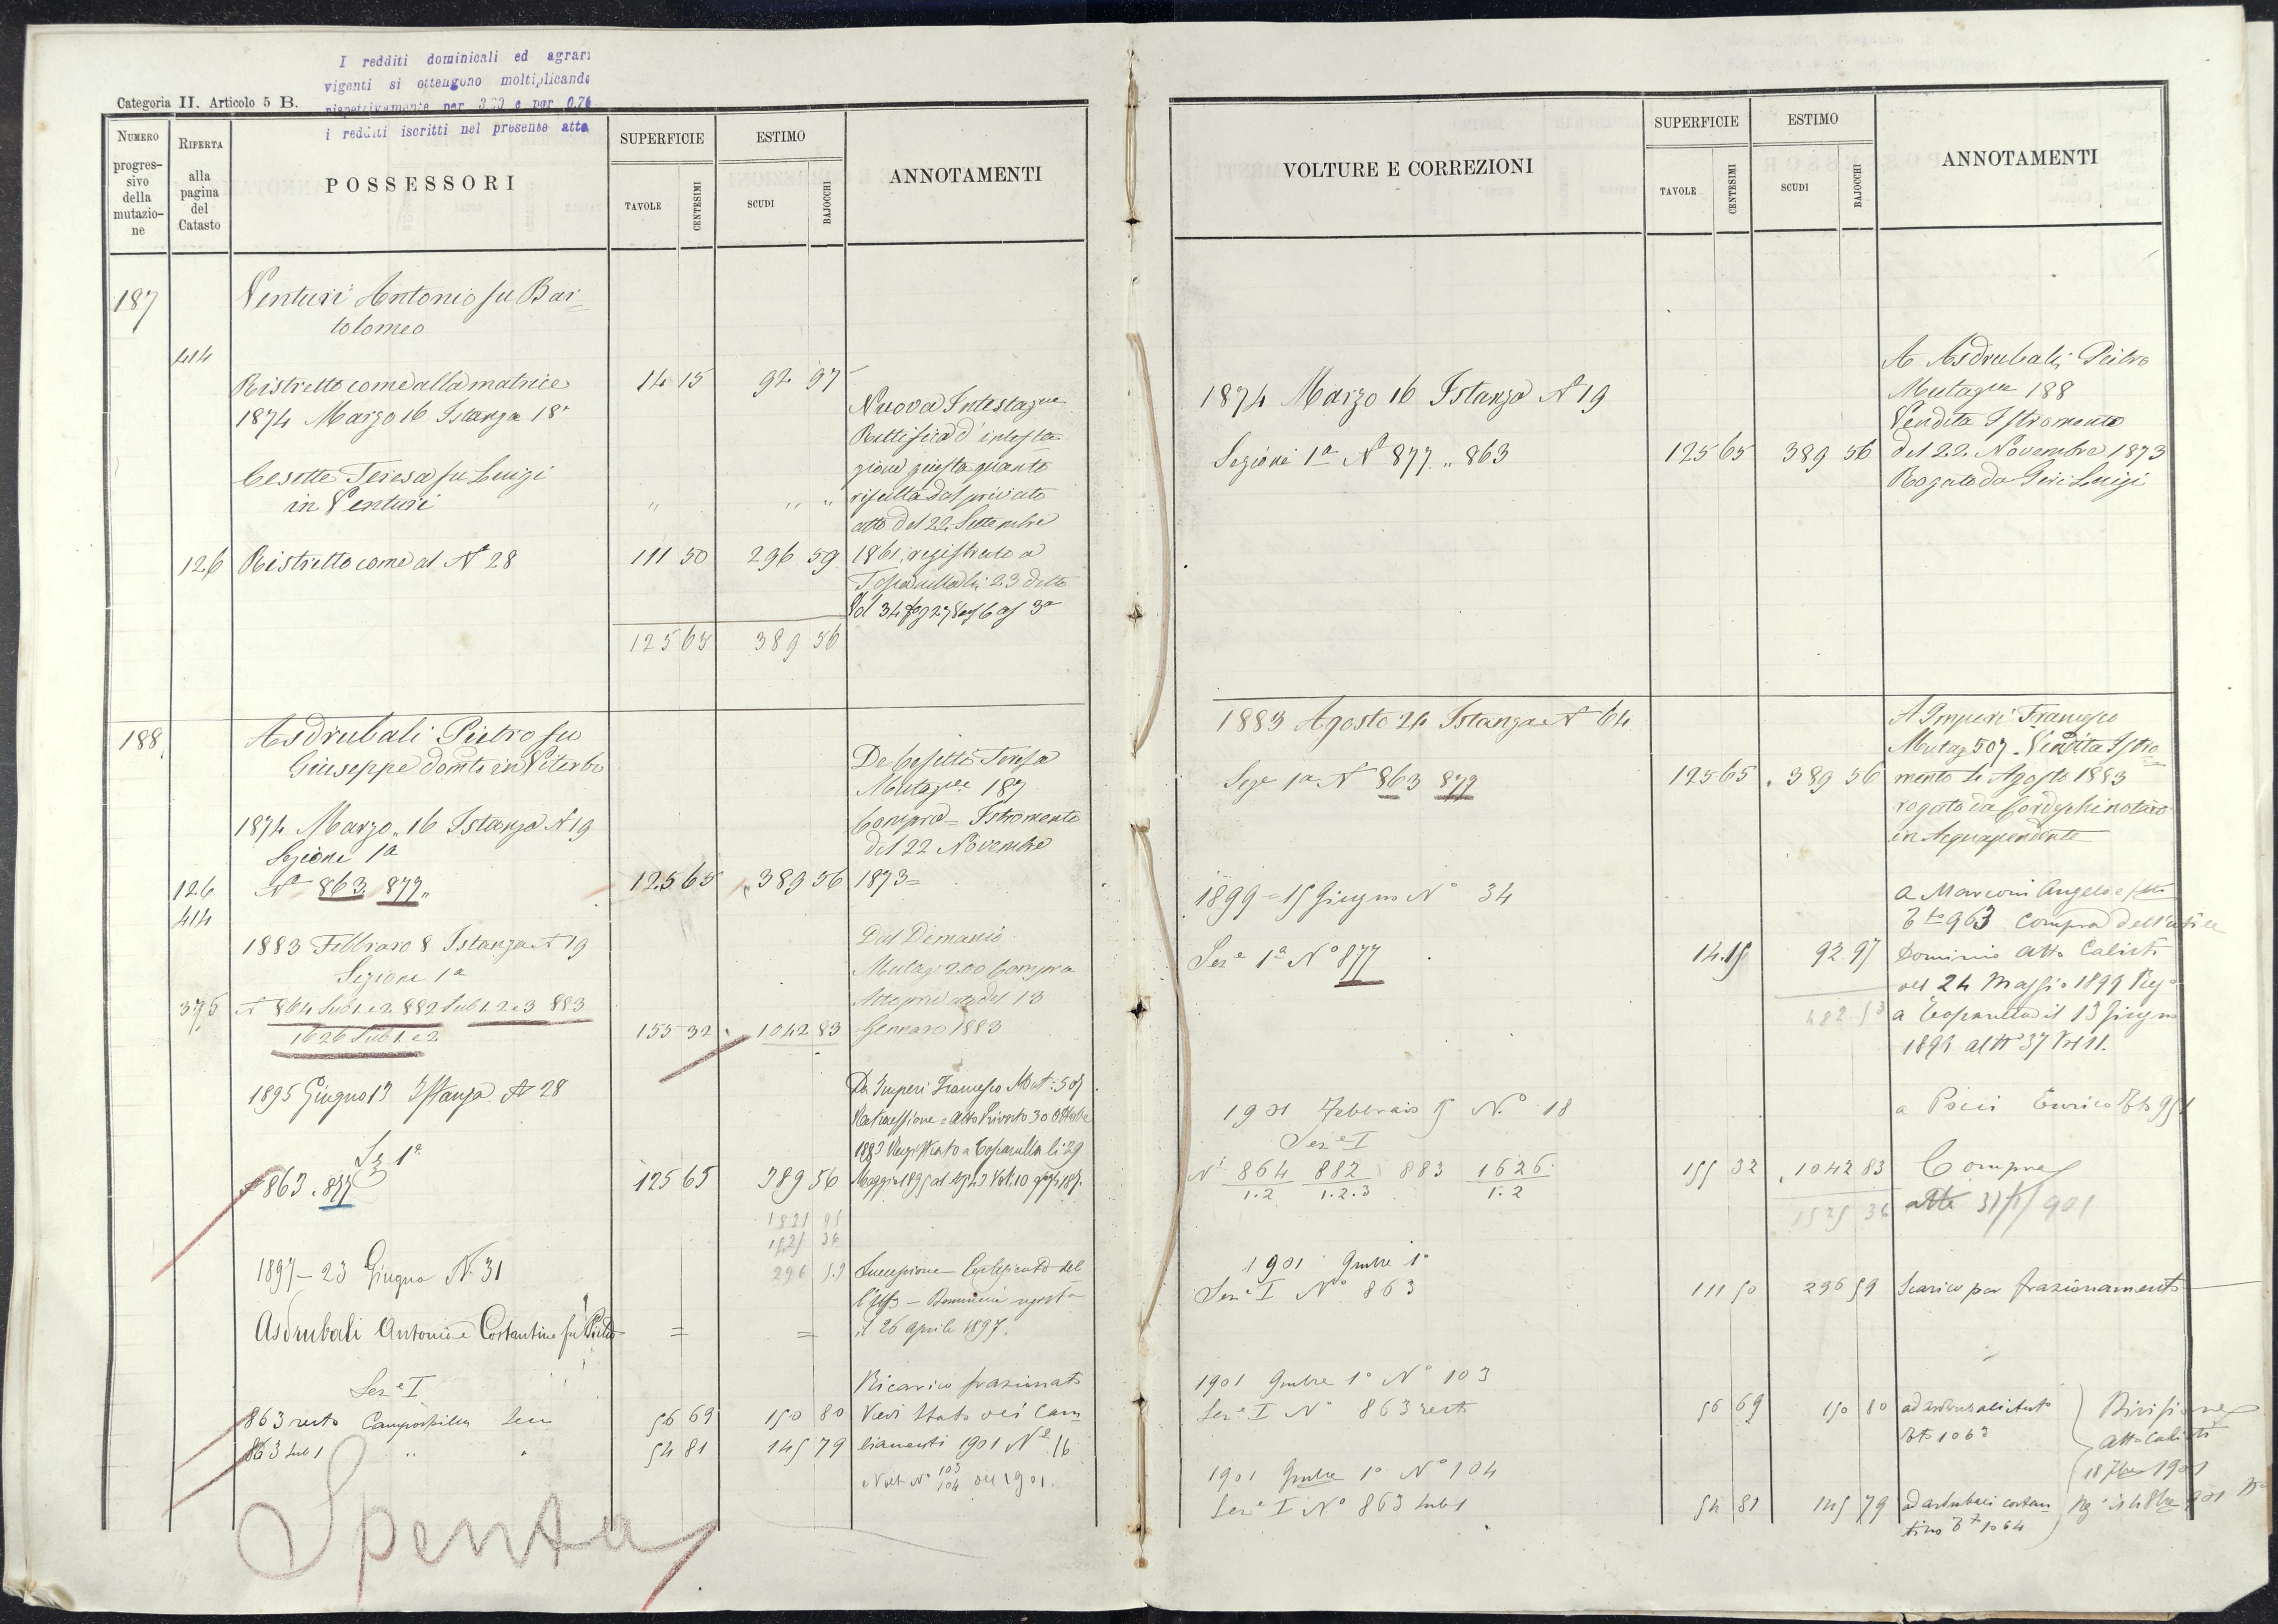 I redditi dominicali ed agrari
vigenti si ottengono moltiplicando
rispettivamente per 3.20 e per 0.76
i redditi iscritti nel presente atto
Categoria II. Articolo 5 B.
NUMERO progressivo della mutazione
RIFERTA alla pagina del Catasto
POSSESSORI
SUPERFICIE
TAVOLE CENTESIMI
ESTIMO
SCUDI BAJOCCHI
ANNOTAMENTI
187 Venturi Antonio fu Bar=
tolomeo
414
Ristretto come alla matrice 14 15 92 97
1874 Marzo 16 Istanza 18
Nuova Intestazne
Rettifica d'intesta
zione giusta quanto
risulta dal privato
atto del 22 Settembre
1861 registrato a
Toscanella li 23 detto
Vol 34
Cesetti Teresa fu Luigi
in Venturi " " "
126 Ristretto come al No 28 111 50 296 59
125 65 389 56
188 Asdrubali Pietro fu
Giuseppe domto in Viterbo
1874 Marzo 16 Istanza N 19
Sezione 1a
126 No 863 877 125 65 389 56
414
Da Cesetti Teresa
Mutazne 187
Compra = Istromento
del 22 Novembre
1873 =
1883 Febbraro 8 Istanza N 19
Sezione 1a
375 N 864 Sub 1 e 2 882 Sub 1. 2 e 3 883
1626 Sub 1 e 2 155 32 1042 83
Dal Demanio
Mutaz 200 Compra
Atto privato del 13
Gennaro 1883
1895 Giugno 13 Istanza No 28
Sez 1a
No 863. 877 125 65 389 56
Da Imperi Francesco Mut: 507
Retrocessione = Atto Privato 30 Ottobre
1883 Registrato a Toscanella li 29
Maggio 1895 al
1821 95
1525 36
296 59
1897 - 23 Giugno N. 31
Asdrubali Antonio e Costantino fu Pietro = =
Successione - Certificato del
il 26 Aprile 1897.
Seze I
863 resto 56 69 150 80
863 sub 1 " " 54 81 145 79
Ricarico frazionato
Vedi Stato dei Cam
biamenti 1901 No 16
e Volt No 103 104 del 1901.
Spenta
VOLTURE E CORREZIONI
SUPERFICIE
TAVOLE CENTESIMI
ESTIMO
SCUDI BAJOCCHI
ANNOTAMENTI
1874 Marzo 16 Istanza No 19
Sezione 1a No 877 " 863 125 65 389 56
A Asdrubali Pietro
Mutazne 188
Vendita Istromento
del 22 Novembre 1873
Rogato da Luigi
1883 Agosto 24 Istanza No 64
Seze 1a No 863 877 125 65 389 56
A Imperi Francesco
Mutaz 507 - Vendita Istro
mento 4 Agosto 1883
rogato da notaro
in Acquapendente
1899 = 15 Giugno No 34
Seze 1a No 877 14.15 92.97
482 53
a Marconi Angelo e
963 Compra dell'utile
Dominio Atto Calisti
del 24 Maggio 1899 Rego
a Toscanella il 13 Giugno
1899 al No 37 Vol 11.
1901 Febbraio 15 No 18
Seze I
Ni 864 882 883 1626 155 32 1042 83
1.2 1.2.3 1.2
1525 36
a Pocci Enrico 951
Compra
atto
1901 9mbre 1o
Seze I No 863 111 50 296 59 Scarico per frazionamento
1901 9mbre 1o No 103
Seze I No 863 resto 56 69 150 80 ad Asdrubali Anto
1063
1901 9mbre 1o No 104
Seze I No 863 sub 1 54 81 145 79 ad Asdrubali Costan
tino 1064
Divisione
Atto Calisti
18 7bre 1901